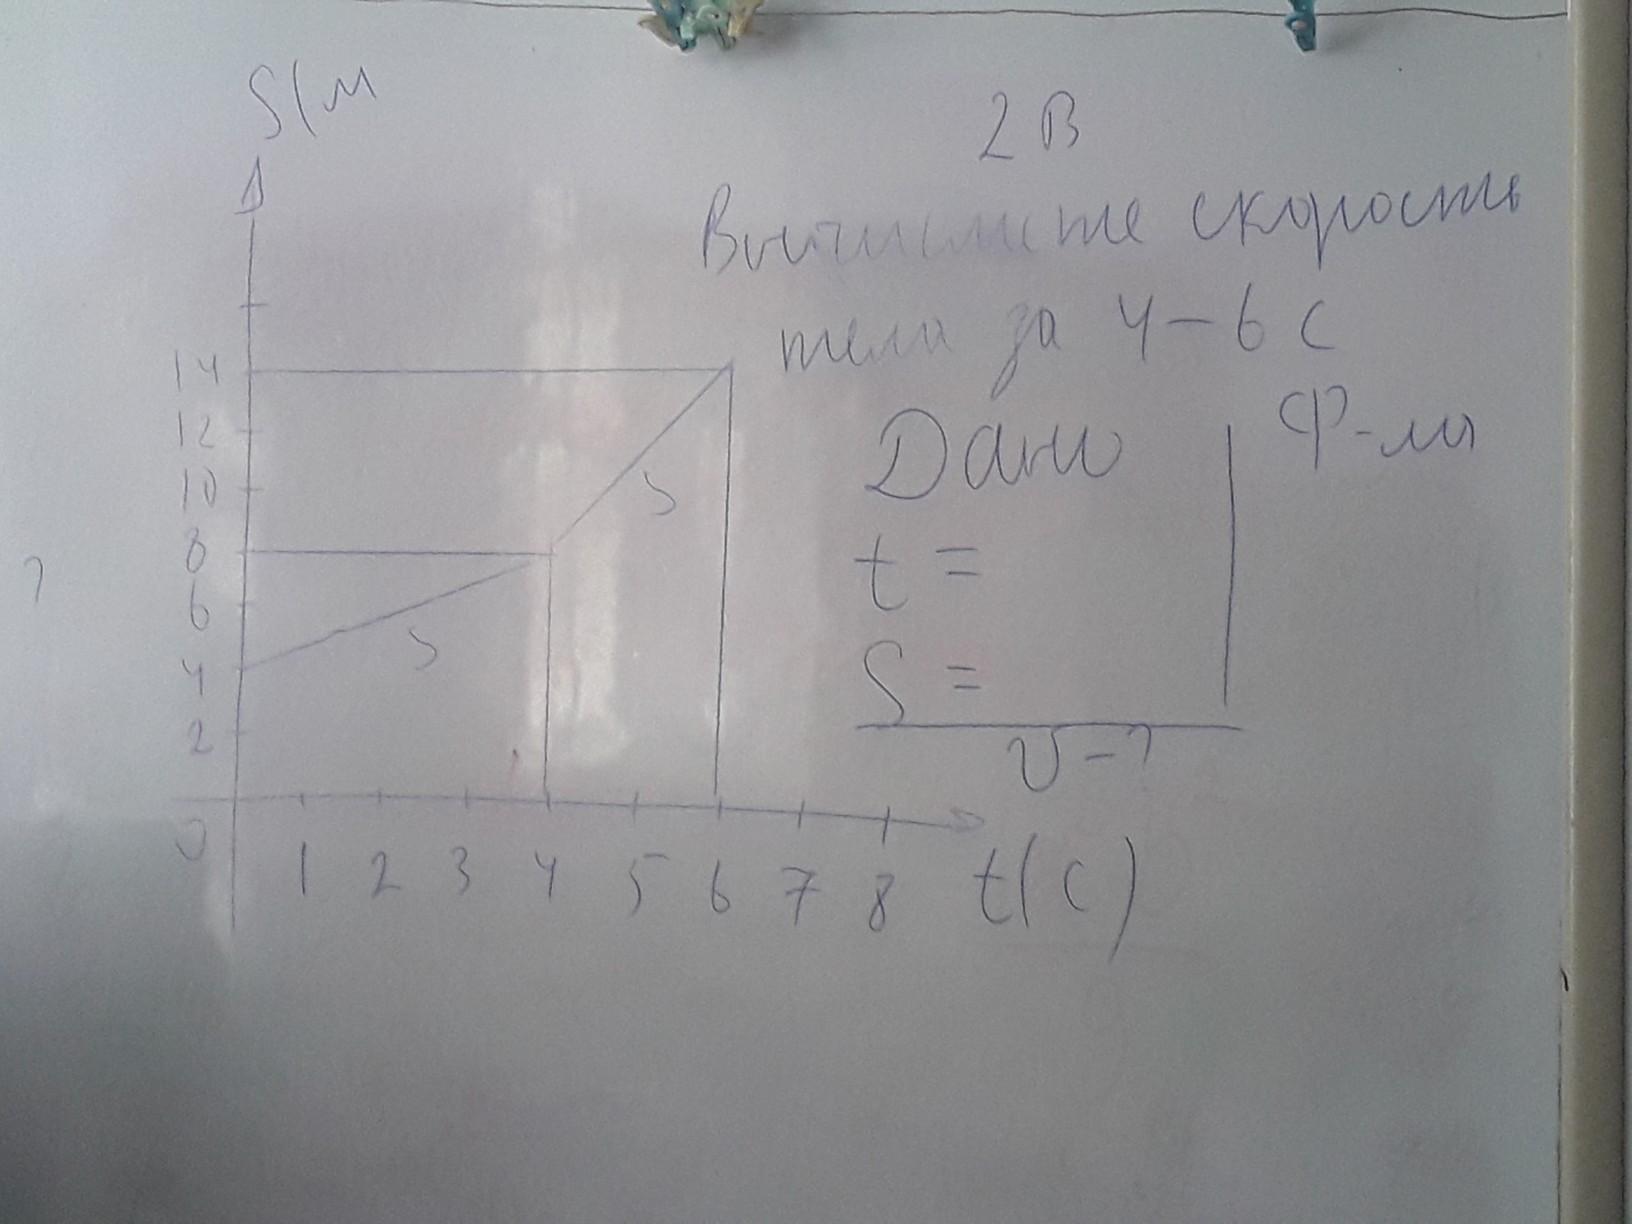 S(м
2 В
Вычислите скорость
тела за 4-6 с
Дано
Ф-лы
t =
S =
υ-?
14
12
10
8
6
4
2
S
S
?
0 1 2 3 4 5 6 7 8 t(с)